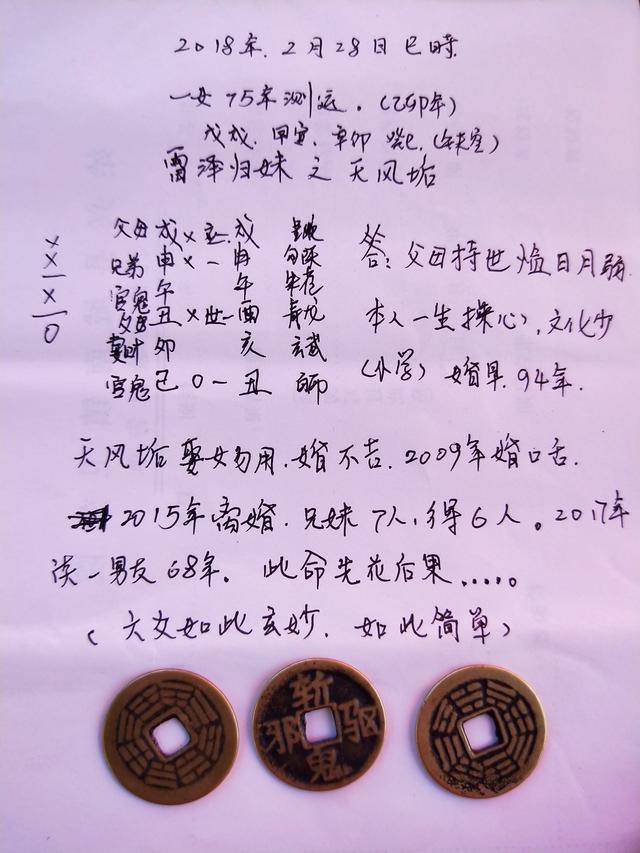 2018年.2月28日巳时.
一女75年测运.(乙卯年)
戊戌.甲寅.辛卯 癸巳.(午未空)
雷泽归妹之天风垢
父母戌×应.戌
兄弟申×一申 勾陈
官鬼午 午 朱雀
父母丑×世一酉 青龙
妻财卯 亥 玄武
官鬼巳0一丑 白虎
答:父母持世值日月弱
本人一生操心,文化少
(小学)婚早.94年.
天风垢娶女勿用.婚不吉.2009年婚口舌.
2015年离婚.兄妹7人,得6人。2017年
谈一男友68年。此命先花后果.....
(六爻如此玄妙.如此简单)
斩
邪 驱
鬼